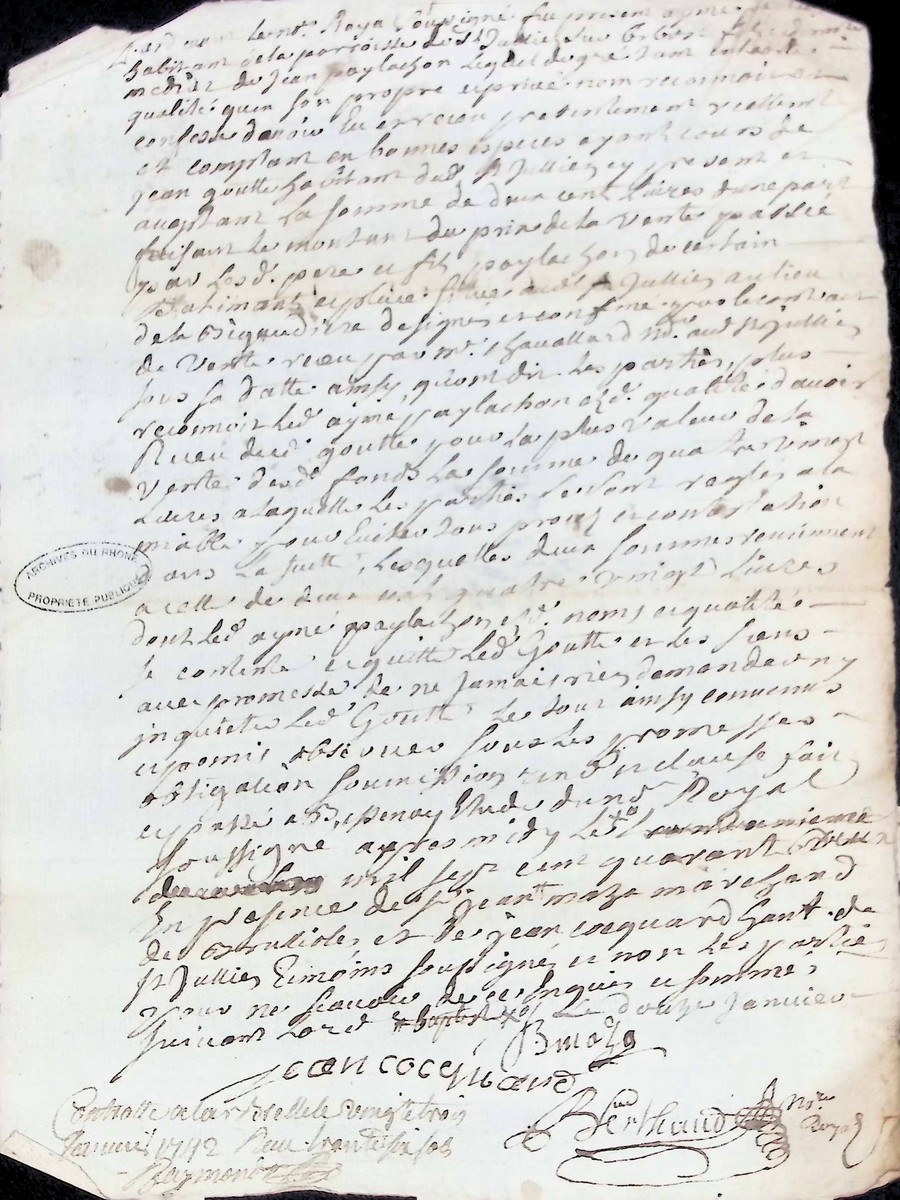 Pardevant le no.re Royal soussigné fut present aymé
habitant de la parroisse de St Jullien sur Bibost
de Jean paylachon lequel de gré tant en lad.
qualité quen son propre et privé nom reconnoit et
confesse d'avoir Eu et receu presentement reellement
et comptant en bonnes especes ayant cours de
jean goutte habitant dud. St Jullien cy present et
acceptant la somme de deux cent Livres d'une part
faisant le montant du prix de la vente passée
par lesd. pere et fils paylachon de certain
Batiment et place situés aud. St Jullien au lieu
de la designés et confinés par le contract
de vente receu par me. Chavallard no.re aud. St Jullien
sous sa datte ainsy quont dit les parties, plus
reconnoit led. aymé paylachon esd. qualités d'avoir
Receu dud. goutte pour la plus valeur de la
vente desd. fonds la somme de quatre vingt
Livres a laquelle les parties se sont reglés a la
miable pour Eviter tous procez et contestation
dans la suitte, lesquelles deux sommes reviennent
a celle de deux cent quatre vingt Livres
dont led. aymé paylachon esd. noms et qualités
se contente et quitte led. Goutte et les siens
avec promesse de ne jamais rien demander ny
inquieter led. Goutte. Le tout ainsy convenus
et promis observer sous les promesses
obligation soumission et clause fait
et passé a Bessenay Etude du no.re Royal
soussigné apres midy le
mil sept cent quarante deux
En presence de sr. Jean maza marchand
de Brullioles et de jean cocquard habt. de
St Jullien Temoins soussignés et non les parties
pour ne scavoir de ce Enquis et sommés
suivant l'ord. Le douze Janvier
B maza
jean cocquard
Berthaud No.re Royal
Controllé a Larbrelle le vingt trois
Janvier 1742 Receu trente six sols
Raymond
ARCHIVES DU RHONE
PROPRIETE PUBLIQUE